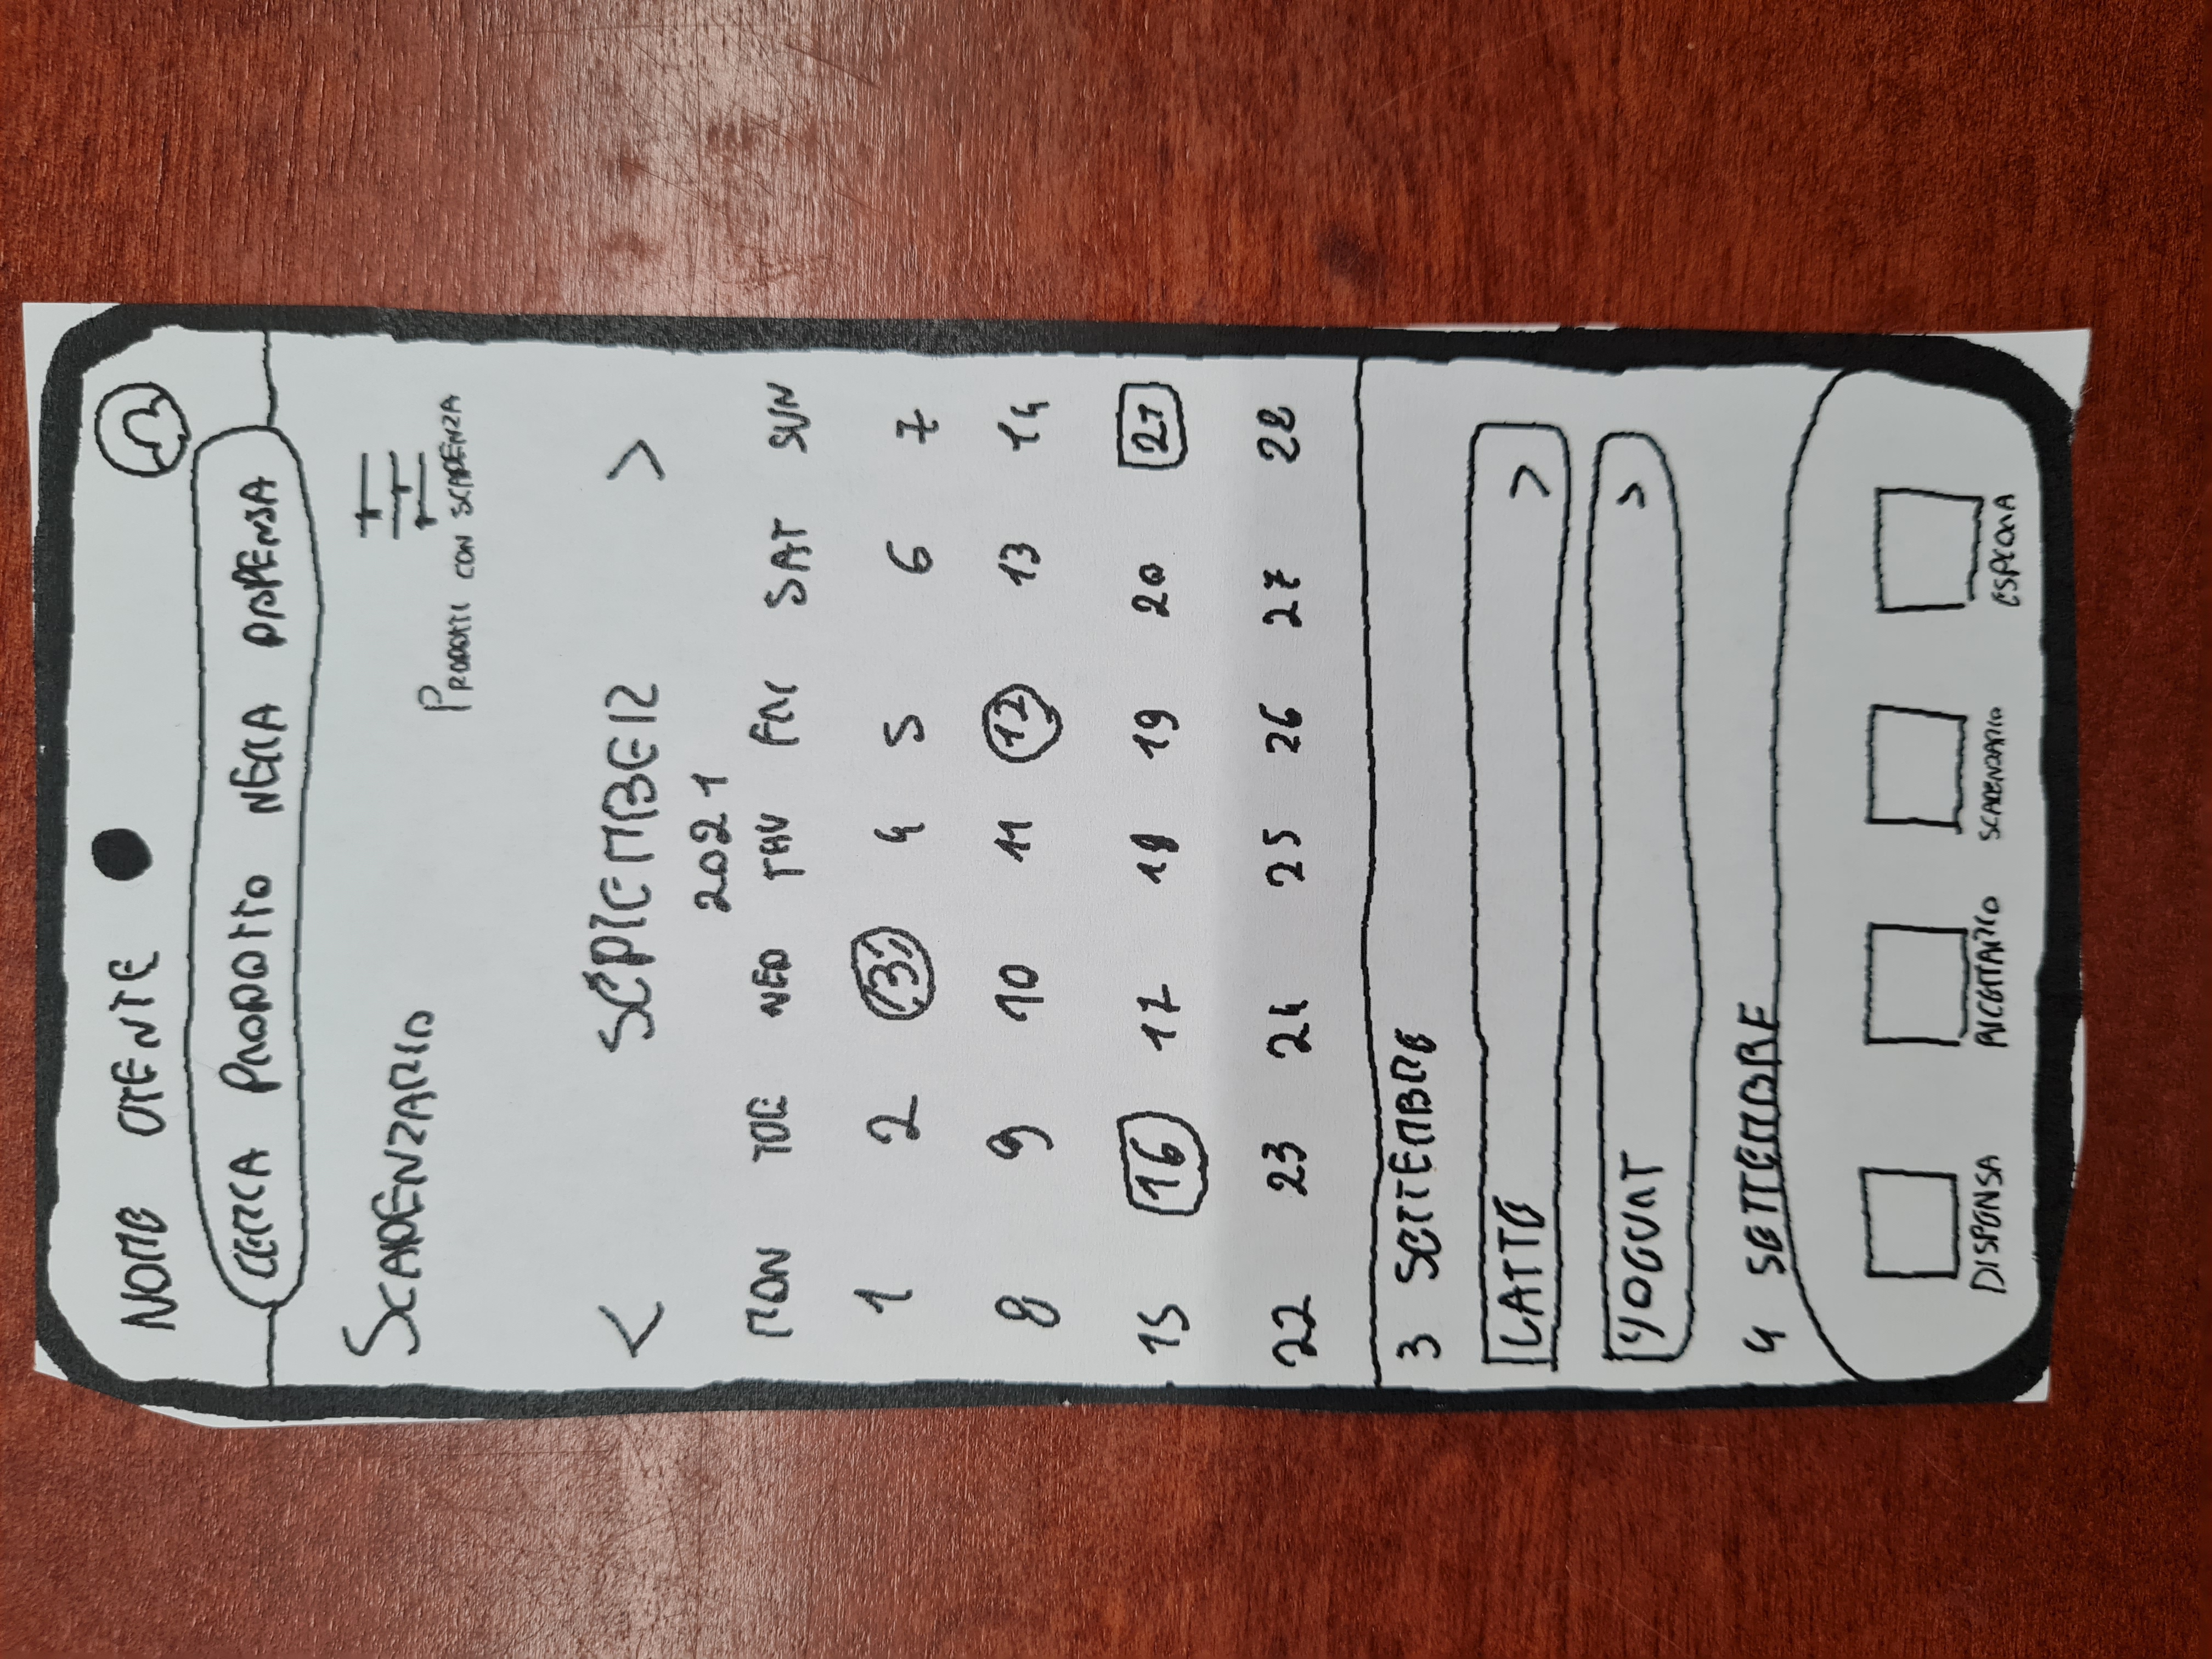 NOME UTENTE
CERCA PRODOTTO NELLA DISPENSA
SCADENZARIO
PRODOTTI CON SCADENZA
< SEPTEMBER >
2021
MON TUE WED THU FRI SAT SUN
1 2 3 4 5 6 7
8 9 10 11 12 13 14
15 16 17 18 19 20 21
22 23 24 25 26 27 28
3 SETTEMBRE
LATTE >
YOGURT >
4 SETTEMBRE
DISPENSA RICETTARIO SCADENZARIO ESPLORA